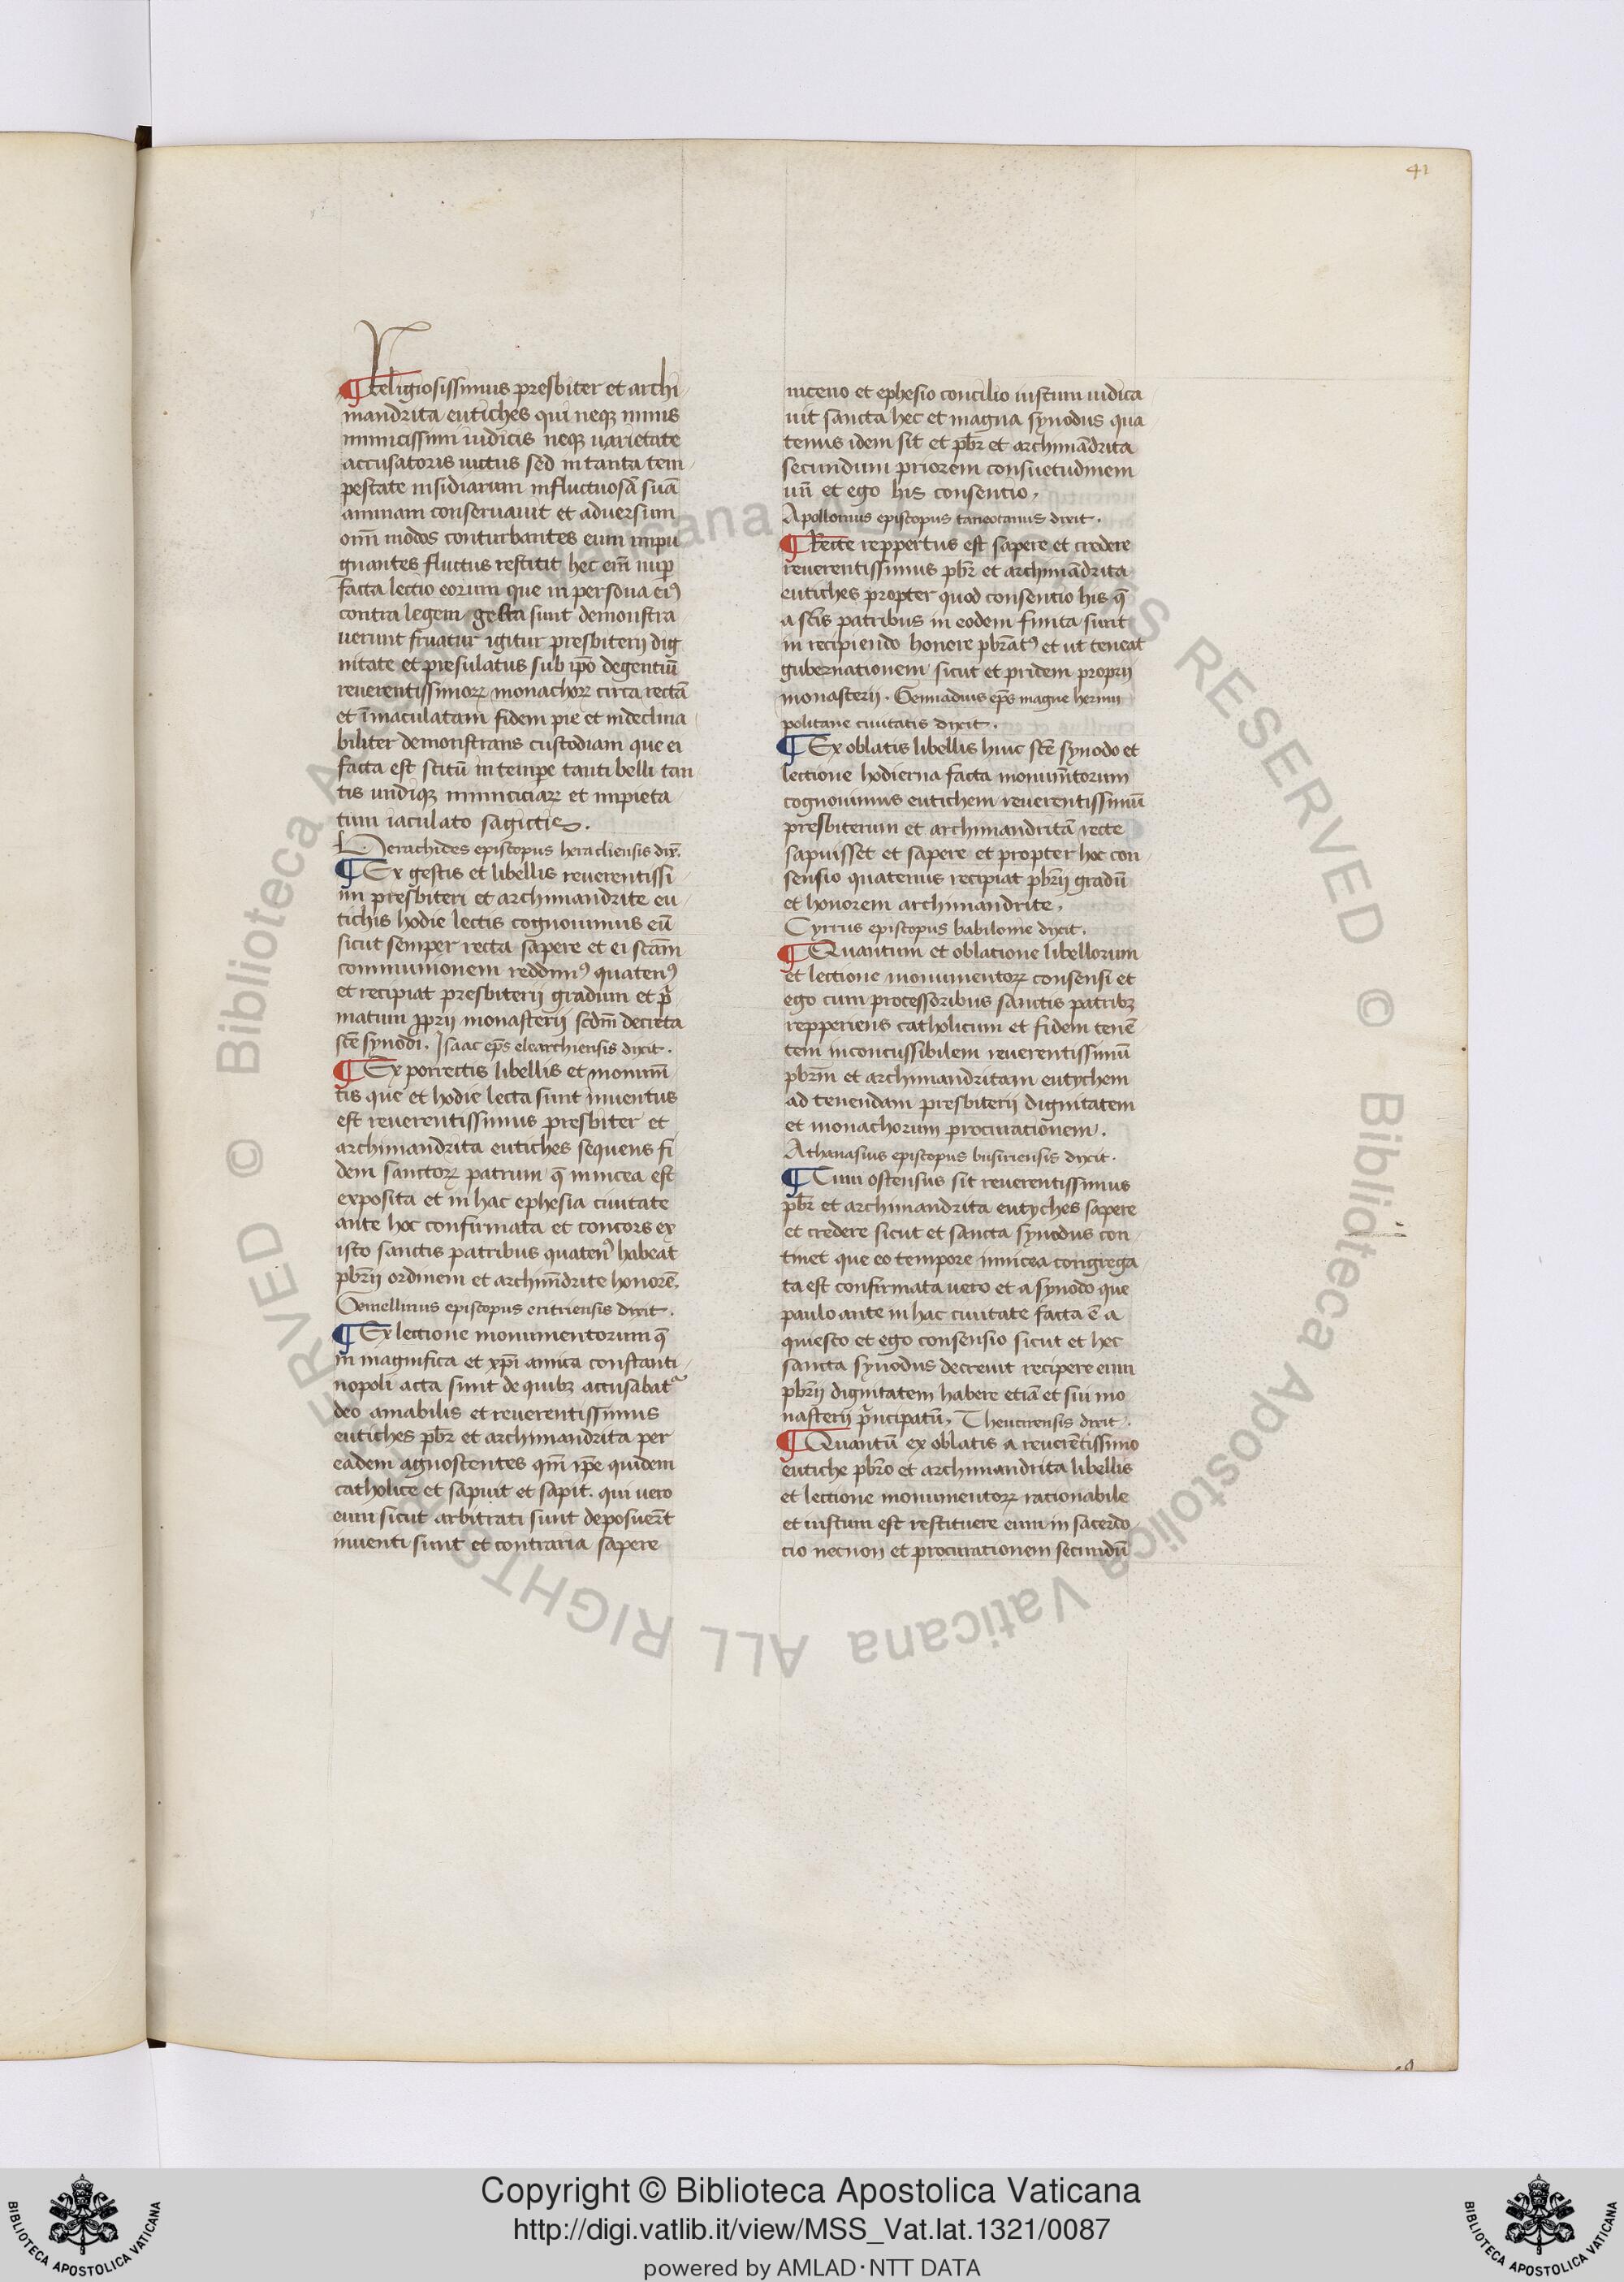 41
¶ Religiosissimus presbiter et archi
mandrita eutiches qui neq minis
inimicissimi iudicis neq uarietate
accusatoris uictus sed in tanta tem
pestate insidiarum influctuosā suā
animam conseruauit et aduersum
om̄i modos conturbantes eum inpu
gnantes fluctus restitit hec em̄ nuꝑ
facta lectio eorum que in persona eiꝰ
contra legem gesta sunt demonstra
uerunt fruatur igitur presbiterij dig
nitate et presulatus sub ip̄o degentiū
reuerentissimoꝝ monachoꝝ circa rectā
et īmaculatam fidem pie et indeclina
biliter demonstrans custodiam que ei
facta est scitū in temꝑe tanti belli tan
tis undiqꝫ inimiciciaꝝ et impieta
tum iaculato sagictis.
Herachides episcopus heracliensis dix̄.
¶ Ex gestis et libellis reuerentissi
mi presbiteri et archimandrite eu
tichis hodie lectis cognouimus eū
sicut semper recta sapere et ei scām
communionem reddimꝰ quatenꝰ
et recipiat presbiterij gradum et p̄
matum ꝓprij monasterij scdm̄ decreta
scē synodi. Isaac ep̄s elearchiensis dixit.
¶ Ex porrectis libellis et monum̄
tis que et hodie lecta sunt inuentus
est reuerentissimus presbiter et
archimandrita eutiches sequens fi
dem sanctoꝝ patrum q̄ in nicea est
exposita et in hac ephesia ciuitate
ante hoc confirmata et concors ex
isto sanctis patribus quatenꝰ habeat
pbr̄ij ordinem et archim̄drite honorē.
Gemellinus episcopus eritriensis dixit.
¶ Ex lectione monumentorum q̄
in magnifica et xp̄i amica constanti
nopoli acta sunt de quibꝫ accusabat̉
deo amabilis et reuerentissimus
eutiches pbr̄ et archimandrita per
eadem agnoscentes qm̄ ip̄e quidem
catholice et sapuit et sapit. qui uero
eum sicut arbitrati sunt deposuer̄t
inuenti sunt et contraria sapere
niceno et ephesio concilio iustum iudica
uit sancta hec et magna synodus qua
tenus idem sit et pbr̄ et archimādrita
secundum priorem consuetudinem
un̄ et ego his consentio,
Apollonius episcopus taneotanus dixit.
¶ Recte reppertus est sapere et credere
reuerentissimus pbr̄ et archimādrita
eutiches propter quod consentio his q̄
a scīs patribus in eodem finita sunt
in recipiendo honore pbr̄atꝰ et ut teneat
gubernationem sicut et pridem proprij
monasterij. Gennadius ep̄s magne hermu
politane ciuitatis dixit.
¶ Ex oblatis libellis huic scē synodo et
lectione hodierna facta monum̄torum
cognouimus eutichem reuerentissimū
presbiterum et archimandritā recte
sapuisset et sapere et propter hoc con
sensio quatenus recipiat pbr̄ij gradū
et honorem archimandrite.
Cyrrus episcopus babilonie dixit.
¶ Quantum et oblatione libellorum
et lectione monumentoꝝ consensi et
ego cum processoribus sanctis patribꝫ
repperiens catholicum et fidem tenē
tem inconcussibilem reuerentissimū
pbrm̄ et archimandritam eutychem
ad tenendam presbiterij dignitatem
et monachorum procurationem.
Athanasius episcopus busiriensis dixit.
¶ Cum ostensus sit reuerentissimus
pbr̄ et archimandrita eutyches sapere
et credere sicut et sancta synodus con
tinet que eo tempore in nicea congrega
ta est confirmata uero et a synodo que
paulo ante in hac ciuitate facta ē a
quiesco et ego consensio sicut et hec
sancta synodus decreuit recipere eum
pbr̄ij dignitatem habere etiā et sui mo
nasterij p̄ncipatū, Theucirensis dixit.
¶ Quantū ex oblatis a reuerētissimo
eutiche pbr̄o et archimandrita libellis
et lectione monumentoꝝ racionabile
et iustum est restituere eum in sacerdo
cio necnon et procurationem secundū
© Biblioteca Apostolica Vaticana ALL RIGHTS RESERVED
© Biblioteca Apostolica Vaticana ALL RIGHTS RESERVED
BIBLIOTECA APOSTOLICA VATICANA
Copyright © Biblioteca Apostolica Vaticana
http://digi.vatlib.it/view/MSS_Vat.lat.1321/0087
powered by AMLAD·NTT DATA
BIBLIOTECA APOSTOLICA VATICANA